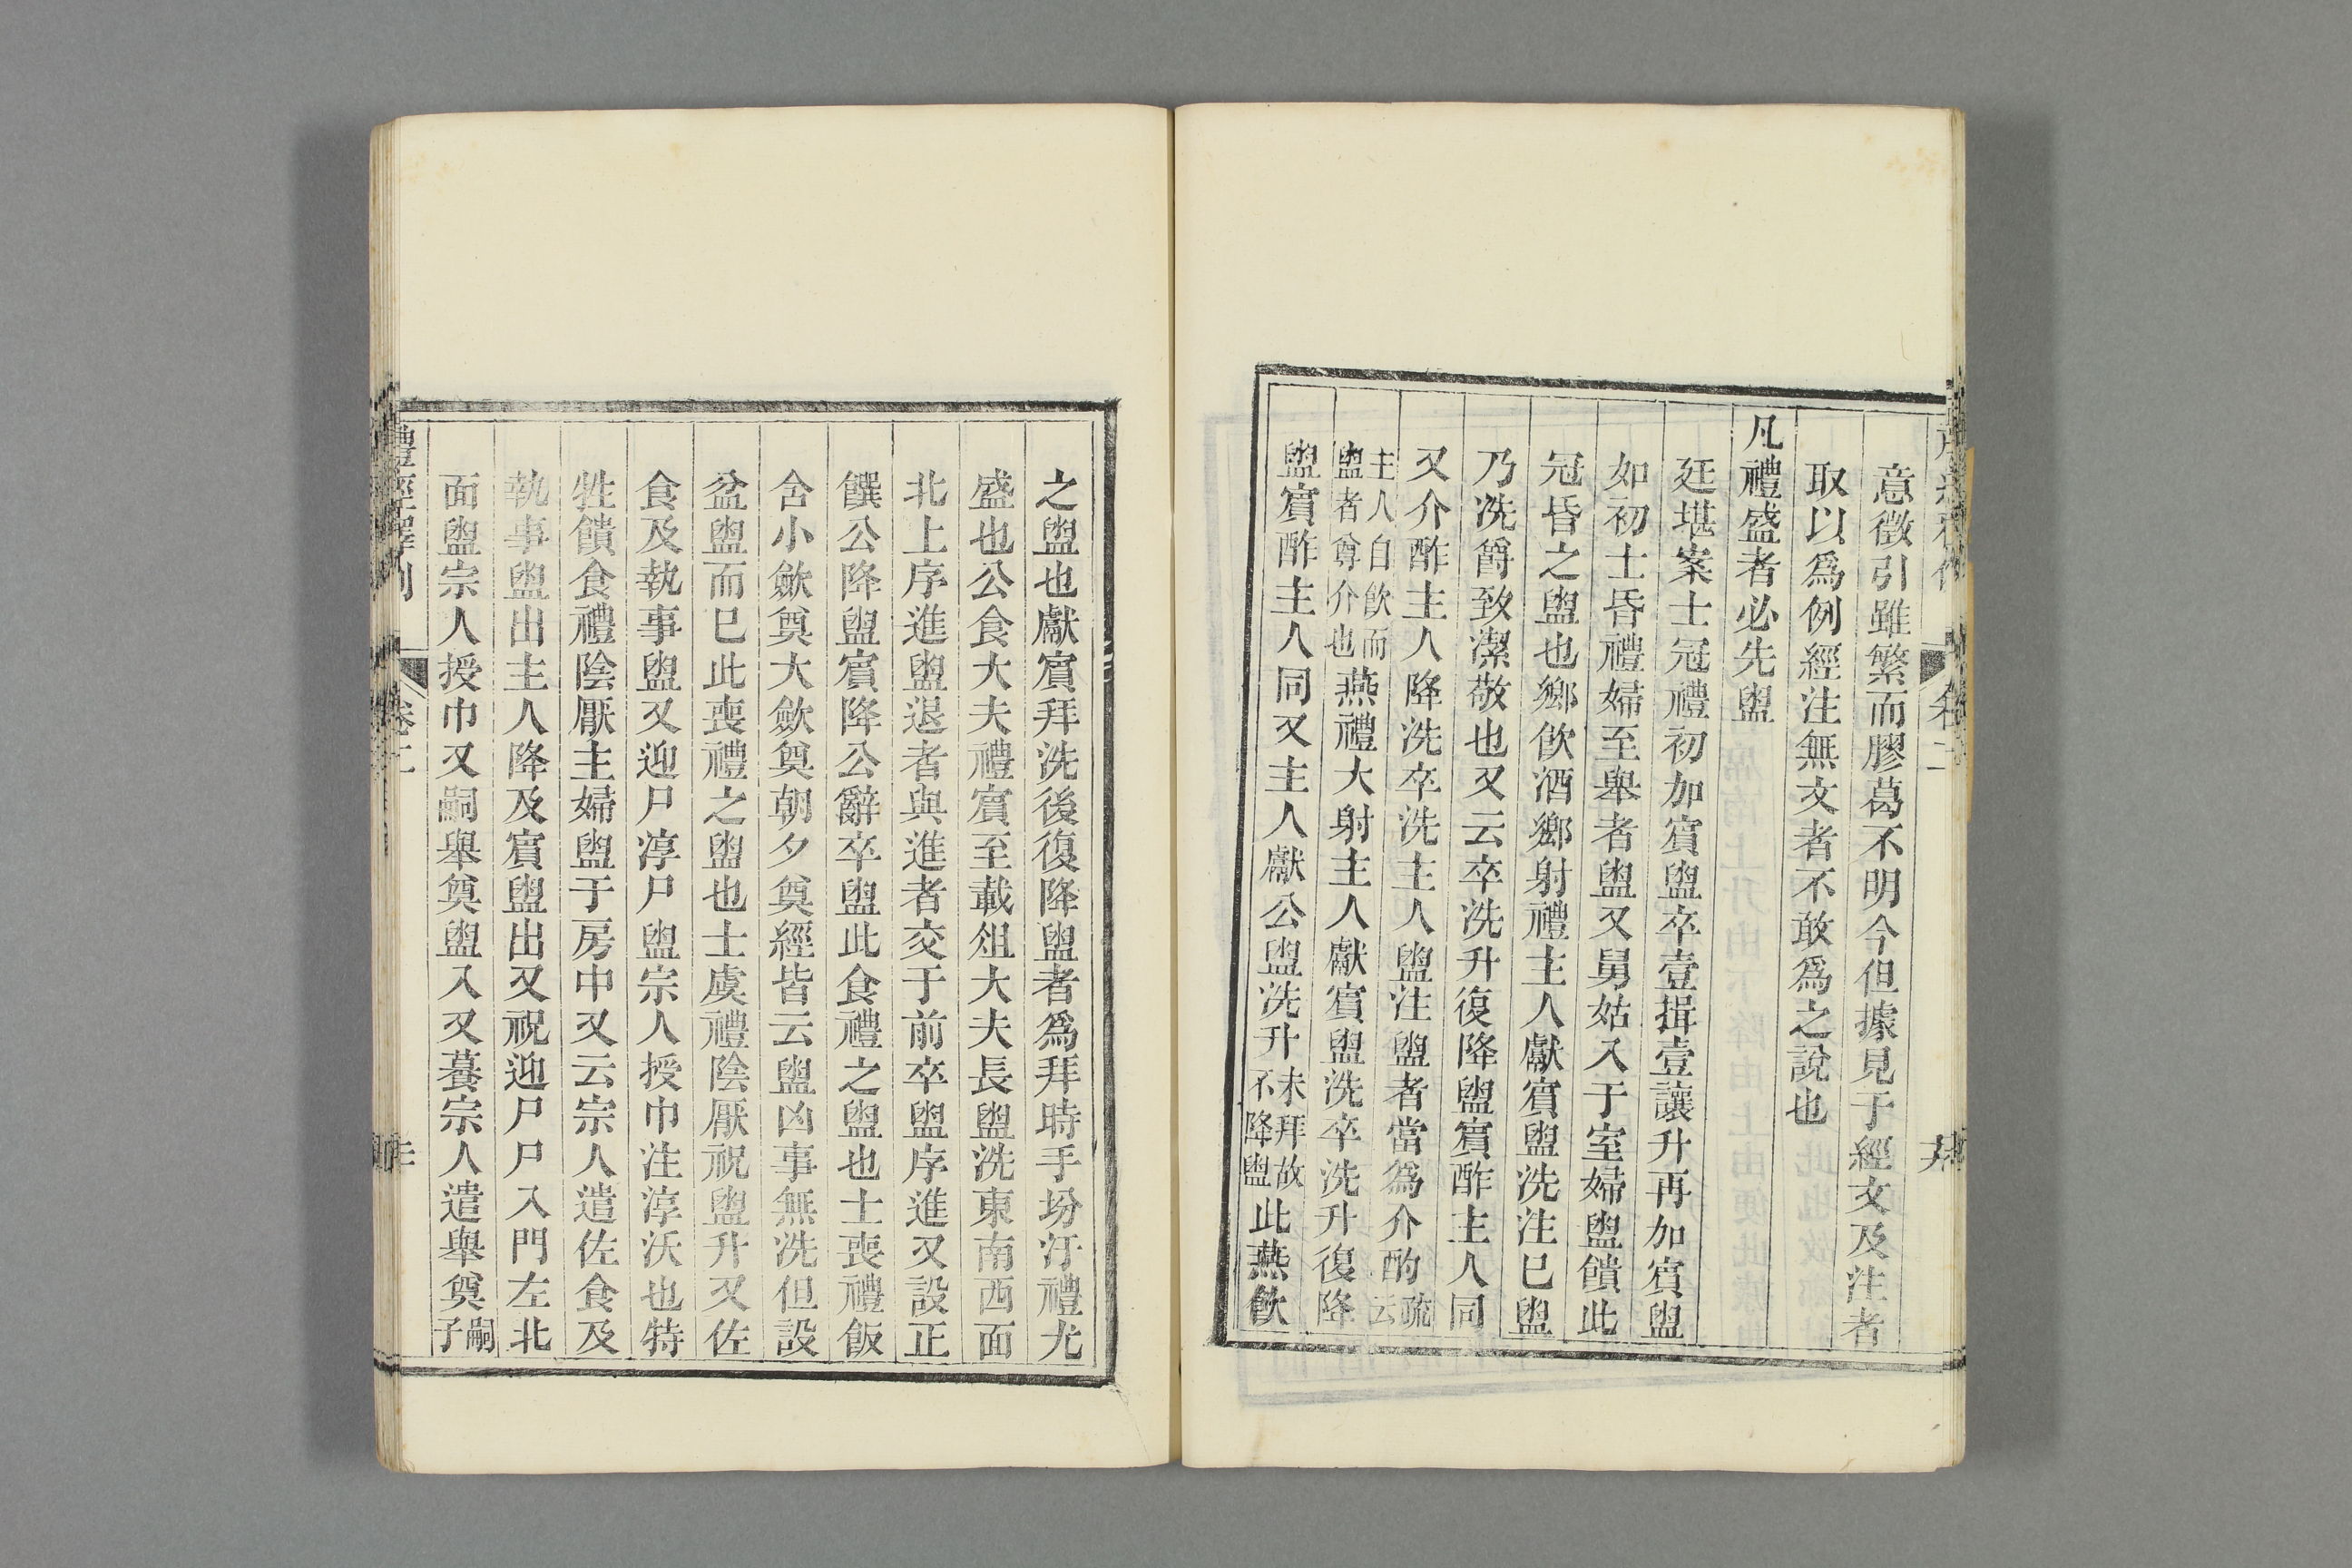 意徵引雖繁而膠葛不明今但據見于經文及注者
取以爲例經注無文者不敢爲之說也
凡禮盛者必先盥
廷堪案士冠禮初加賓盥卒壹揖壹讓升再加賓盥
如初士昏禮婦至舉者盥又舅姑入于室婦盥饋此
冠昏之盥也鄉飲酒鄉射禮主人獻賓盥洗注已盥
乃洗爵致潔敬也又云卒洗升復降盥賓酢主人同
又介酢主人降洗卒洗主人盥注盥者當爲介酌疏云
主人自飲而盥者尊介也燕禮大射主人獻賓盥洗卒洗升復降
盥賓酢主人同又主人獻公盥洗升未拜故不降盥此燕飲
之盥也獻賓拜洗後復降盥者爲拜時手坋汙禮尤
盛也公食大夫禮賓至載俎大夫長盥洗東南西面
北上序進盥退者與進者交于前卒盥序進又設正
饌公降盥賓降公辭卒盥此食禮之盥也士喪禮飯
含小斂奠大斂奠朝夕奠經皆云盥凶事無洗但設
盆盥而已此喪禮之盥也士虞禮陰厭祝盥升又佐
食及執事盥又迎尸淳尸盥宗人授巾注淳沃也特
牲饋食禮陰厭主婦盥于房中又云宗人遣佐食及
執事盥出主人降及賓盥出又祝迎尸尸入門左北
面盥宗人授巾又嗣舉奠盥入又餕宗人遣舉奠嗣子
禮經釋例 卷二